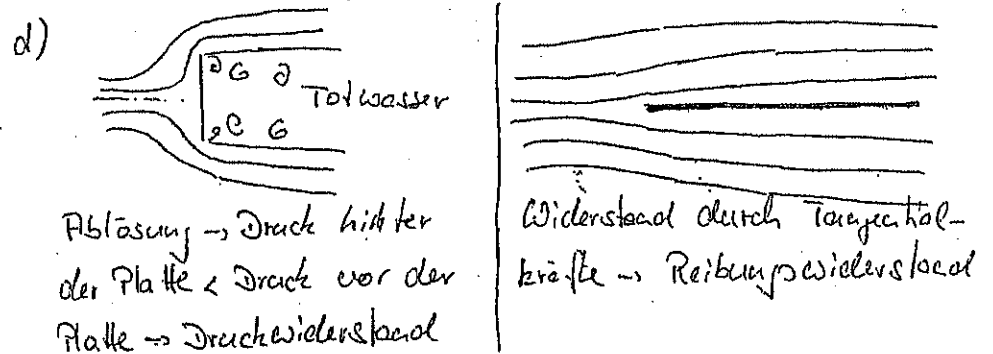 d)
Totwasser
Ablösung → Druck hinter
der Platte < Druck vor der
Platte → Druckwiderstand
Widerstand durch Tangential-
kräfte → Reibungswiderstand